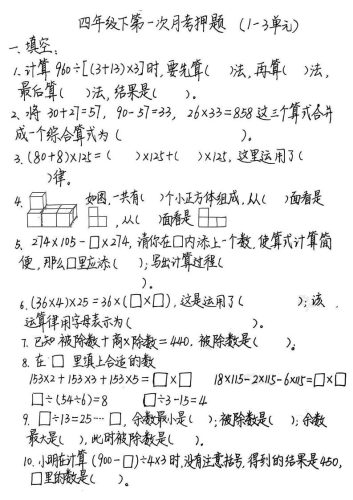 四年级下第一次月考押题 (1-3单元)
一、填空:
1. 计算960÷[(3+13)×3]时,要先算( )法,再算( )法,
最后算( )法,结果是( )。
2. 将30+27=57, 90-57=33, 26×33=858这三个算式合并
成一个综合算式为( )。
3. (80+8)×125=( )×125+( )×125, 这里运用了(
)律。
4. 如图,一共有( )个小正方体组成,从( )面看是
,从( )面看是
5. 274×105-□×274, 请你在□内添上一个数,使算式计算简
便,那么□里应添( ); 写出计算过程(
)。
6. (36×4)×25=36×(□×□), 这是运用了( ); 该
运算律用字母表示为( )。
7. 已知 被除数+商×除数=440, 被除数是( )。
8. 在□里填上合适的数
153×2+153×3+153×5=□×□ 18×115-2×115-6×115=□×□
□÷(54÷6)=8 □÷3-15=4
9. □÷13=25…□, 余数最小是( ); 被除数是( ); 余数
最大是( ), 此时被除数是( )。
10. 小明在计算(900-□)÷4×3时,没有注意括号,得到的结果是450,
□里的数是( )。